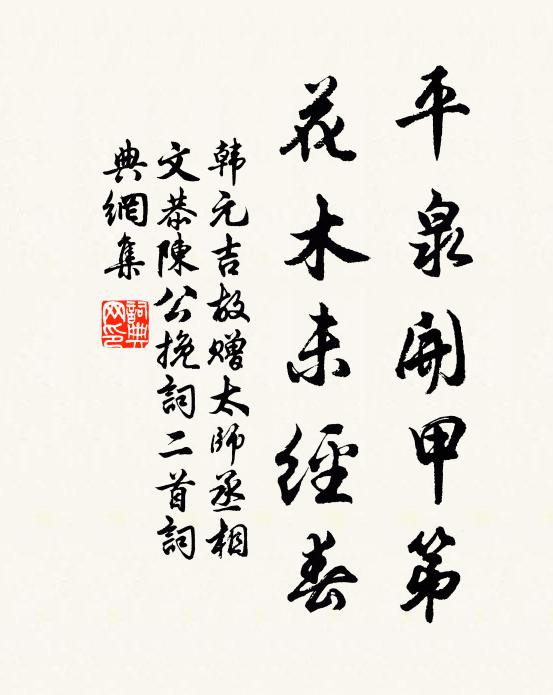 平泉開甲第
花木未經春
韩元吉故赠太師丞相
文恭陳公挽詞二首詞
典網集
詞典网印